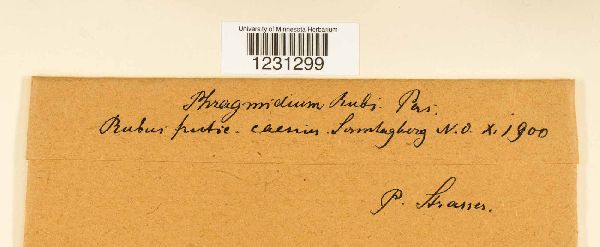 University of Minnesota Herbarium
1231299
Phragmidium Rubi. Pers.
Rubus frutic. caesius. Sonntagberg N.O. X. 1900
P. Strasser.